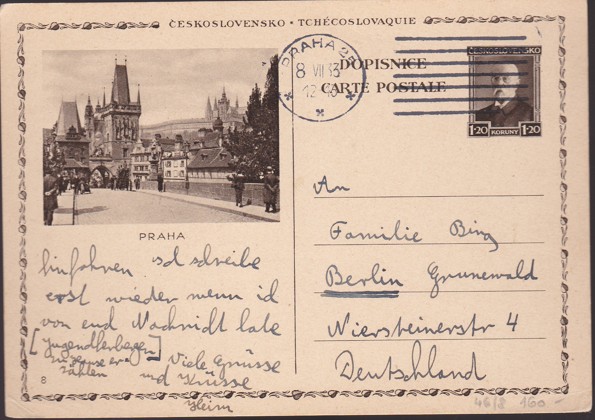 ČESKOSLOVENSKO • TCHÉCOSLOVAQUIE
PRAHA 25
8 VII 35
12
DOPISNICE
CARTE POSTALE
ČESKOSLOVENSKO
1·20 KORUNY 1·20
PRAHA
An
Familie Bing
Berlin Grunewald
Niersteinerstr 4
Deutschland
hinfahren ich schreibe
erst wieder wenn ich
von euch Nachricht habe
zu Hause er-
zählen
Viele Grüsse
und Küsse
Heim
8
46/8 160.-